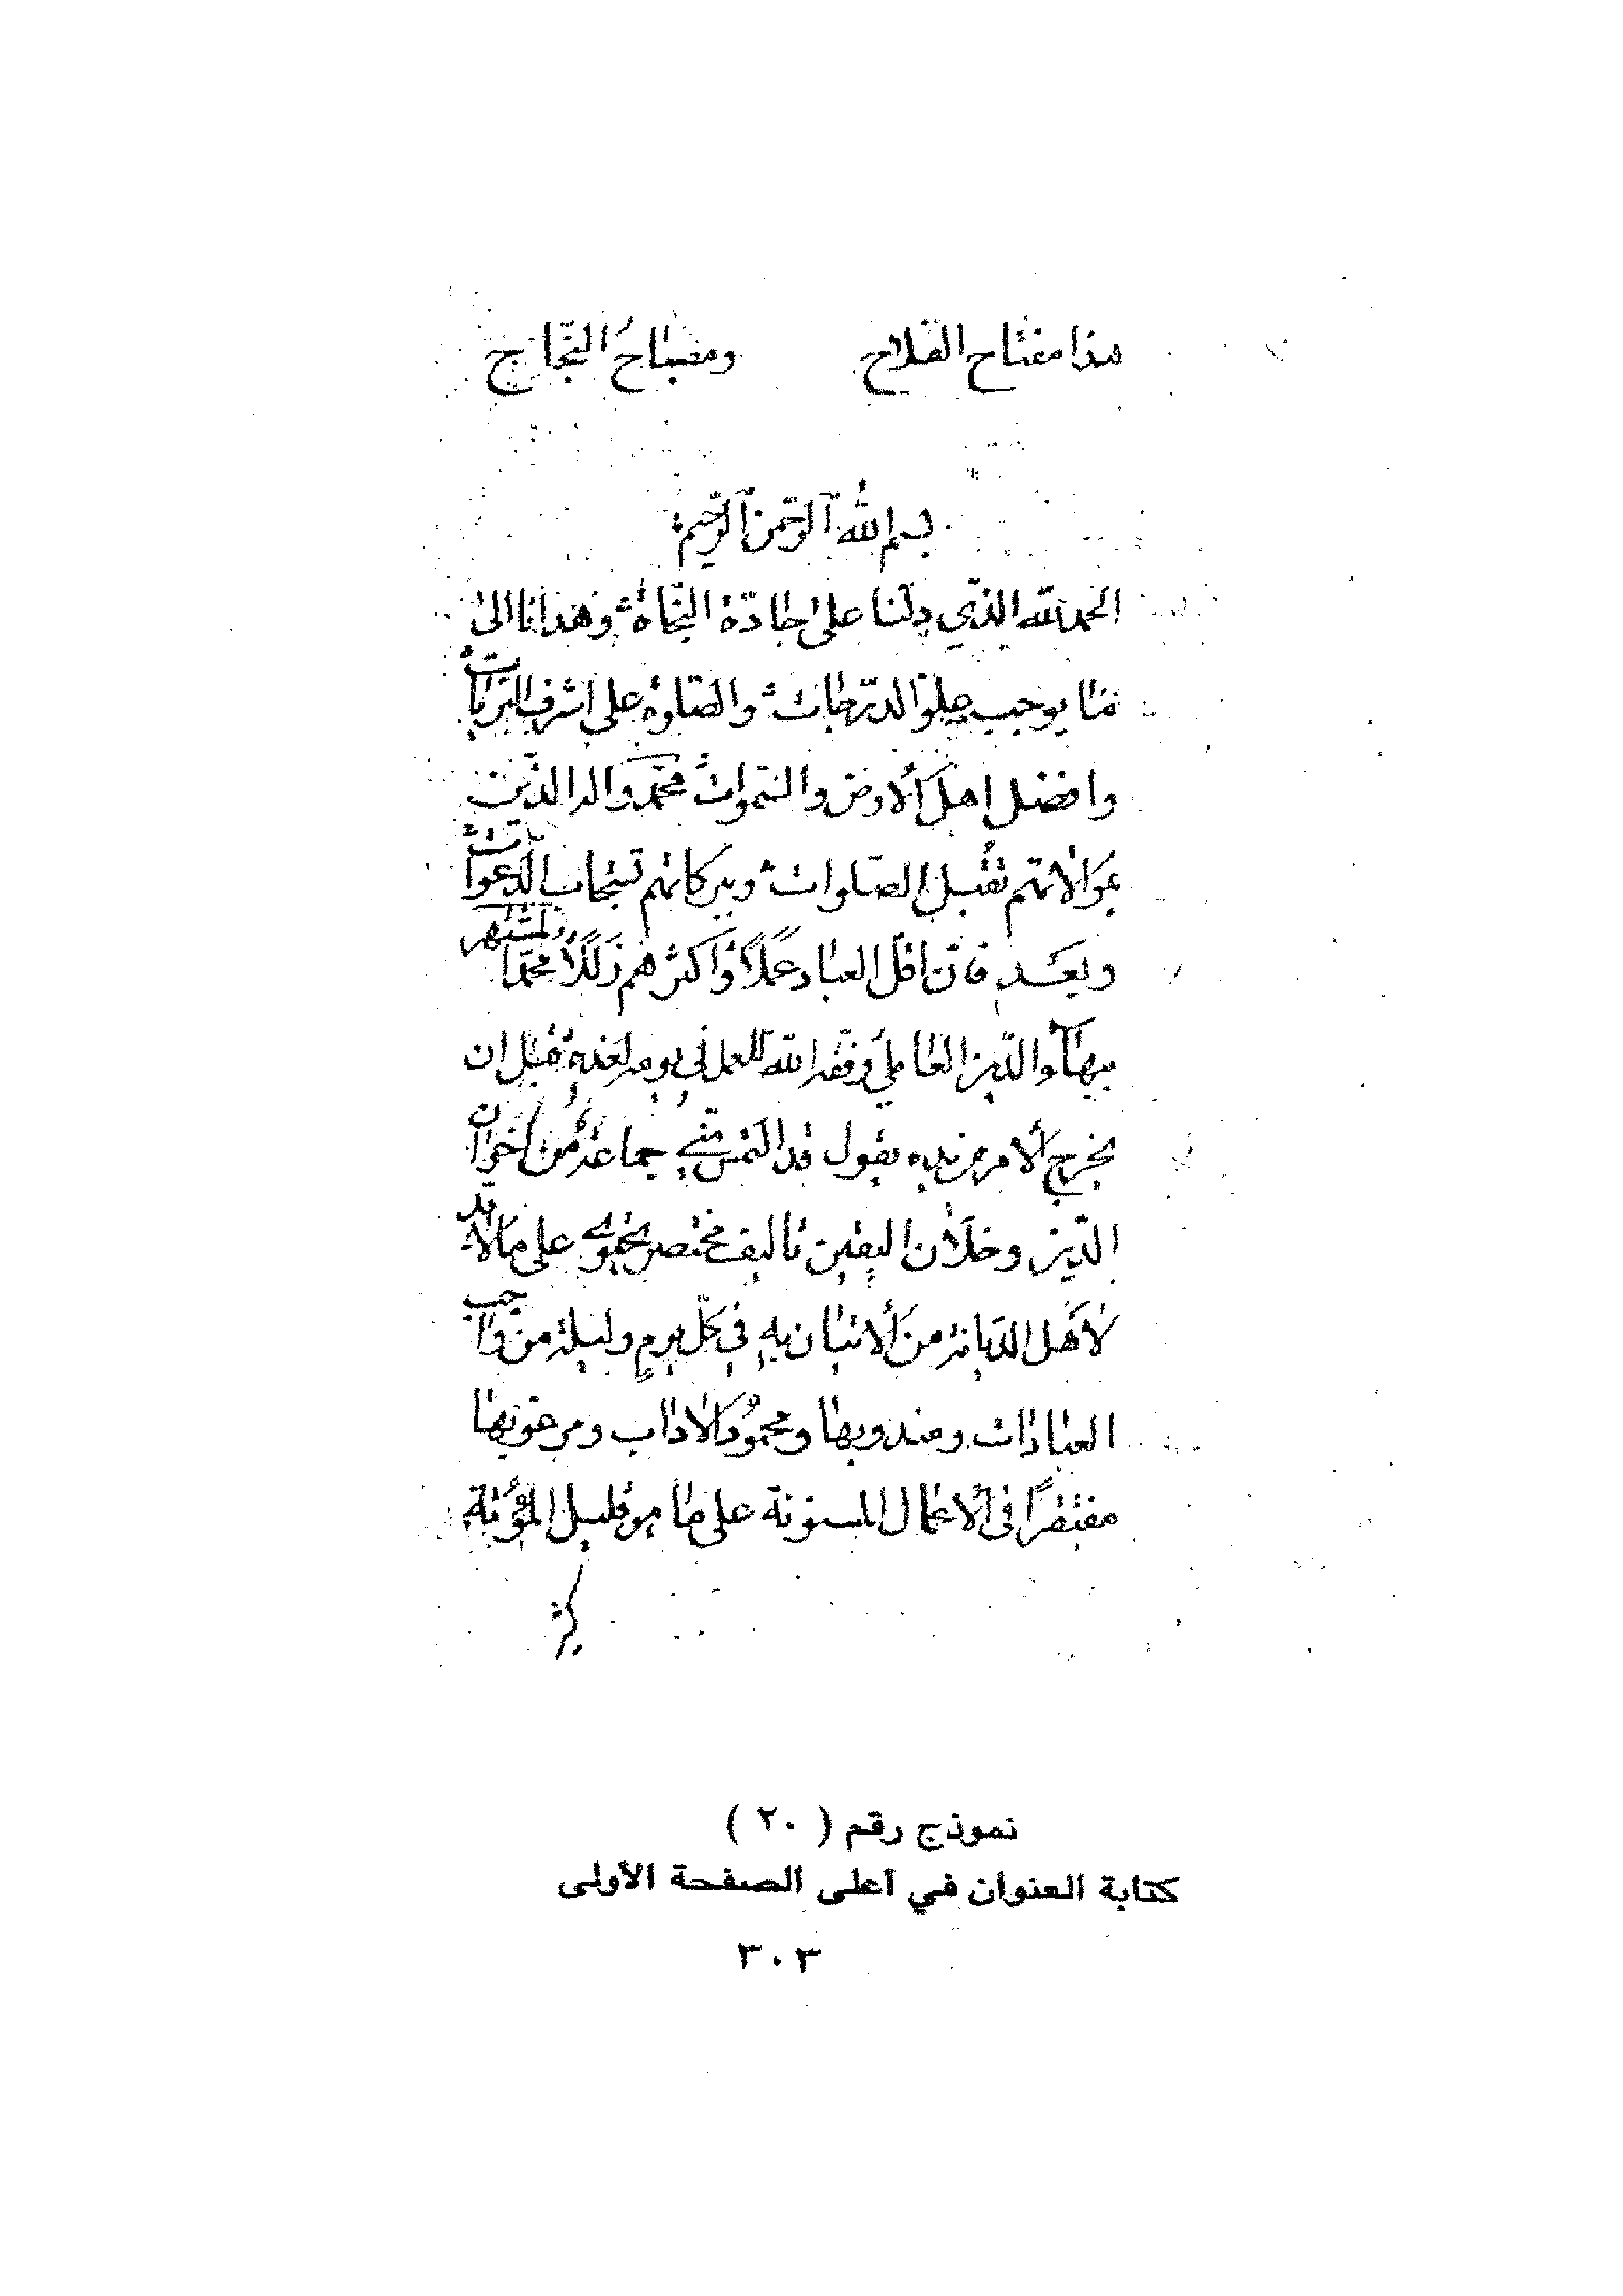 هذا مفتاح الفلاح ومصباح النجاح
بسم الله الرحمن الرحيم
الحمد لله الذي دلنا على جادة النجاة وهدانا الى
ما يوجب علو الدرجات والصلوة على اشرف البريات
وافضل اهل الارض والسموات محمد واله الذين
بموالاتهم تقبل الصلوات وببركاتهم تستجاب الدعوات
وبعد فان اقل العباد عملا واكثرهم زللا محمد المشتهر
ببهاء الدين العاملي وفقه الله للعمل في يومه لغده قبل ان
يخرج الامر من يده يقول قد التمس مني جماعة من اخوان
الدين وخلان اليقين تاليف مختصر يحتوي على ما لا بد
لاهل الديانة من الاتيان به في كل يوم وليلة من واجب
العبادات ومندوبها ومحمود الاداب ومرغوبها
مقتصرا في الاعمال المسنونة على ما هو قليل المؤنة
كثير
نموذج رقم ( ٢٠ )
كتابة العنوان في أعلى الصفحة الأولى
٣٠٣